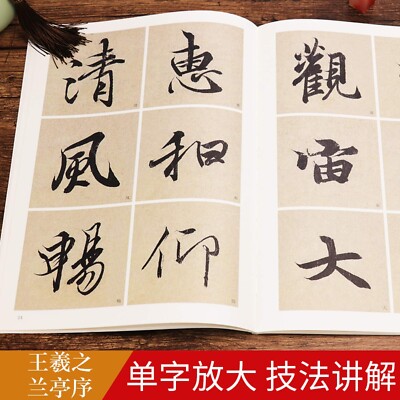 清惠
風和
暢仰
觀
宙
大
王羲之
兰亭序
单字放大 技法讲解